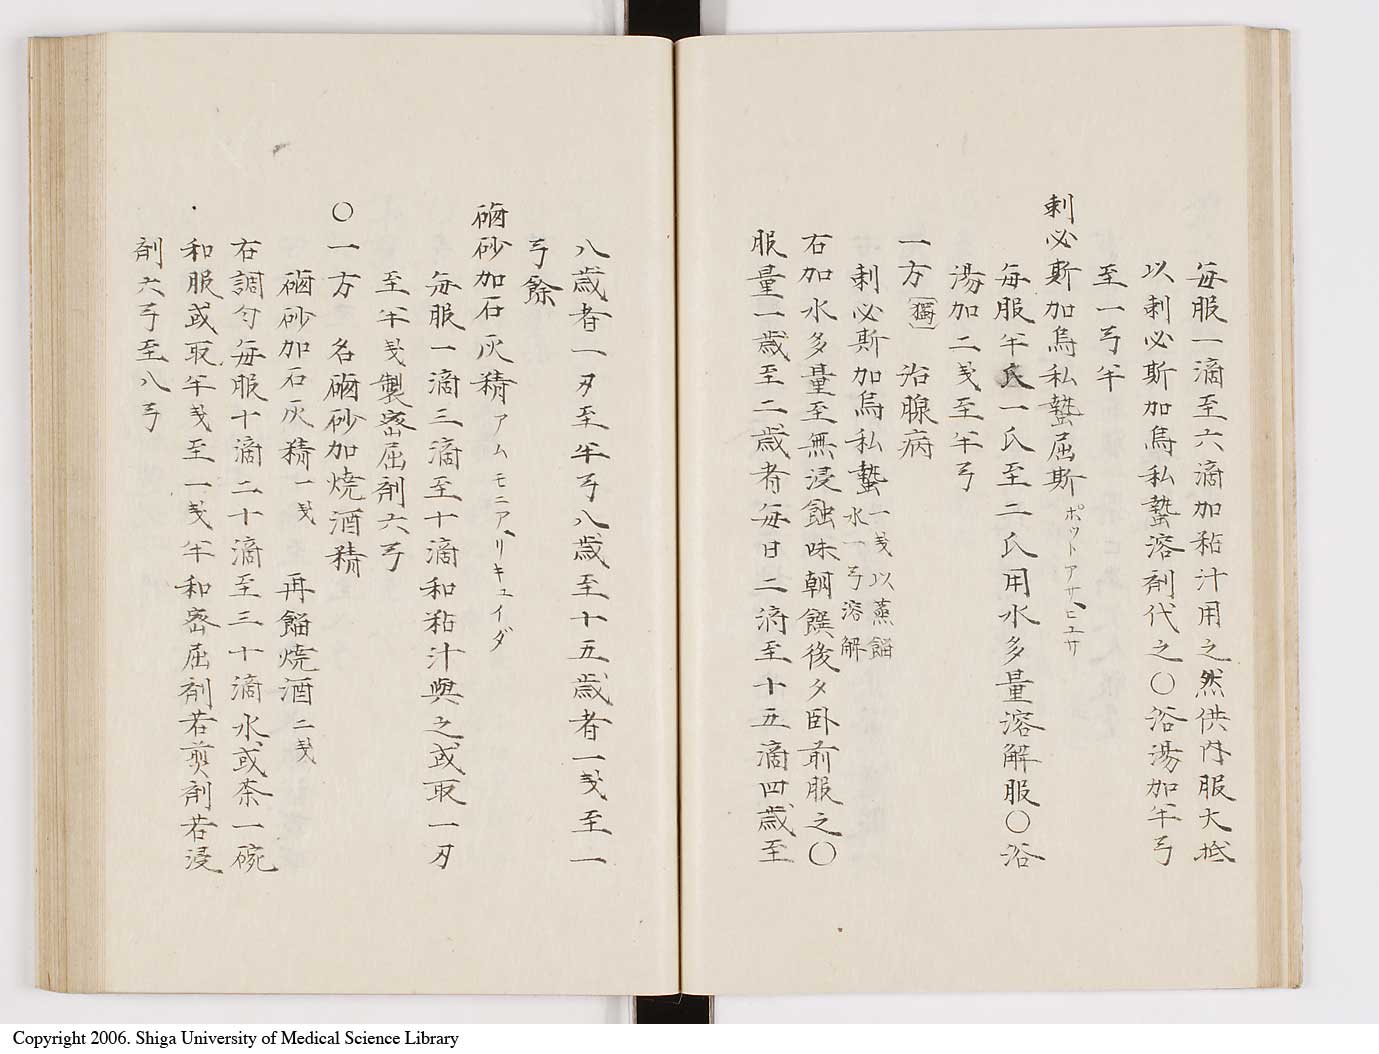 每服一滴至六滴加粘汁用之然供内服大抵
以剌必斯加烏私蟄溶剤代之〇浴湯加半弓
至一弓半
剌必斯加烏私蟄屈斯 ポットアサヒユサ
每服半氏一氏至二氏用水多量溶解服〇浴
湯加二戔至半弓
一方〔獨〕 治腺病
剌必斯加烏私蟄 一戔以蒸餾
水一弓溶解
右加水多量至無浸蝕味朝饌後夕卧前服之〇
服量一歳至二歳者每日二滴至十五滴四歳至
八歳者一刄至半弓八歳至十五歳者一戔至一
弓餘
磠砂加石灰精 アムモニアリキュイダ
每服一滴三滴至十滴和粘汁與之或取一刄
至半戔製密屈剤六弓
〇一方 名磠砂加焼酒精
磠砂加石灰精一戔 再餾焼酒二戔
右調匀每服十滴二十滴至三十滴水或茶一碗
和服或取半戔至一戔半和密屈剤若煎剤若浸
剤六弓至八弓
Copyright 2006. Shiga University of Medical Science Library